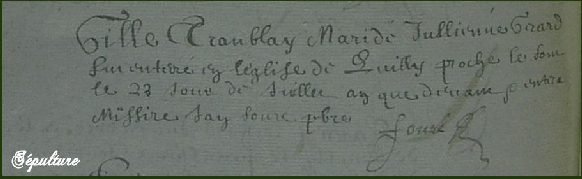 Gille Tranblay Mari de Jullienne Girard
fut enterré en léglise de Quilly proche le
le 23 Jour de Juillet an que devant p entere
Missire Jan pbre
Sépulture